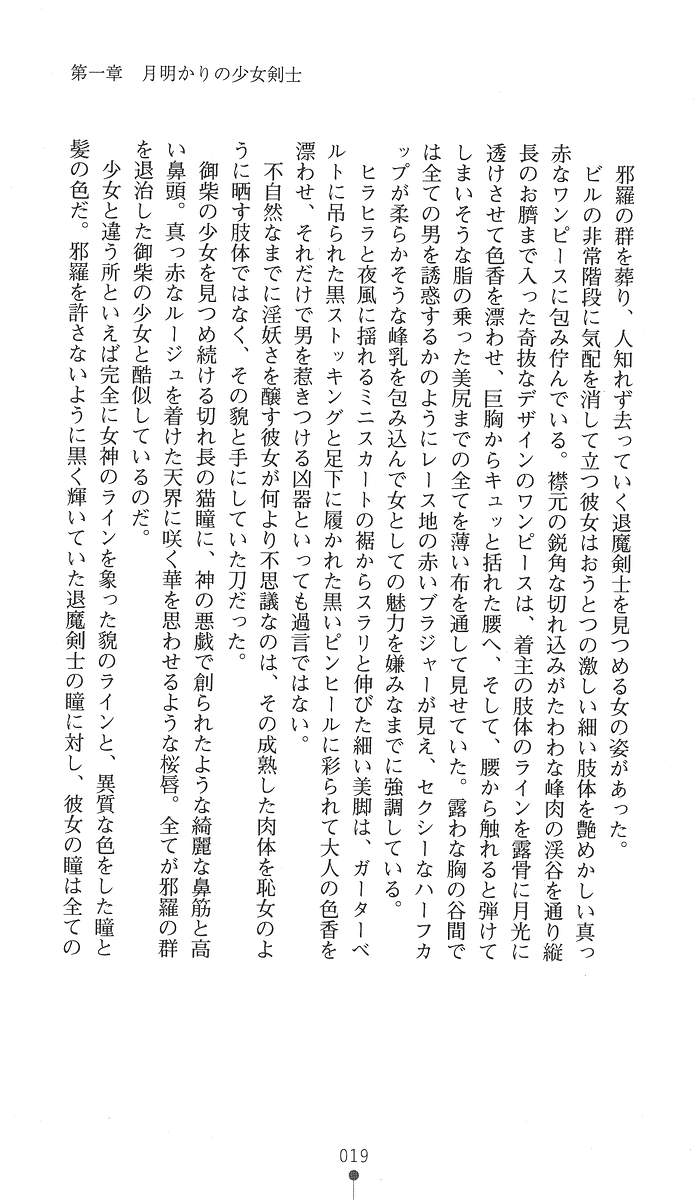 第一章　月明かりの少女剣士
邪羅の群を葬り、人知れず去っていく退魔剣士を見つめる女の姿があった。
ビルの非常階段に気配を消して立つ彼女はおうとつの激しい細い肢体を艶めかしい真っ
赤なワンピースに包み佇んでいる。襟元の鋭角な切れ込みがたわわな峰肉の渓谷を通り縦
長のお臍まで入った奇抜なデザインのワンピースは、着主の肢体のラインを露骨に月光に
透けさせて色香を漂わせ、巨胸からキュッと括れた腰へ、そして、腰から触れると弾けて
しまいそうな脂の乗った美尻までの全てを薄い布を通して見せていた。露わな胸の谷間で
は全ての男を誘惑するかのようにレース地の赤いブラジャーが見え、セクシーなハーフカ
ップが柔らかそうな峰乳を包み込んで女としての魅力を嫌みなまでに強調している。
ヒラヒラと夜風に揺れるミニスカートの裾からスラリと伸びた細い美脚は、ガーターベ
ルトに吊られた黒ストッキングと足下に履かれた黒いピンヒールに彩られて大人の色香を
漂わせ、それだけで男を惹きつける凶器といっても過言ではない。
不自然なまでに淫妖さを醸す彼女が何より不思議なのは、その成熟した肉体を恥女のよ
うに晒す肢体ではなく、その貌と手にしていた刀だった。
御柴の少女を見つめ続ける切れ長の猫瞳に、神の悪戯で創られたような綺麗な鼻筋と高
い鼻頭。真っ赤なルージュを着けた天界に咲く華を思わせるような桜唇。全てが邪羅の群
を退治した御柴の少女と酷似しているのだ。
少女と違う所といえば完全に女神のラインを象った貌のラインと、異質な色をした瞳と
髪の色だ。邪羅を許さないように黒く輝いていた退魔剣士の瞳に対し、彼女の瞳は全ての
019